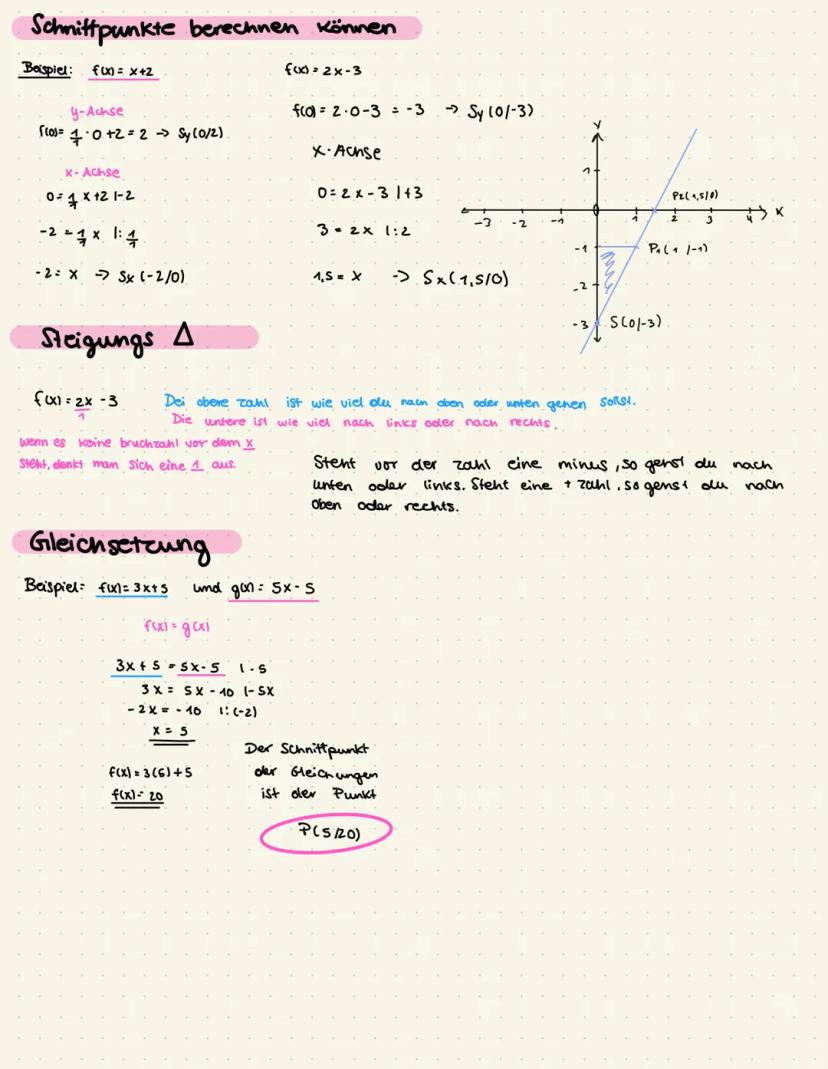 Schnittpunkte berechnen können
Beispiel: f(x) = x+2
y-Achse
f(0) = 1/1 · 0 + 2 = 2 → Sy (0/2)
x-Achse
0 = 1/1 x + 2 |-2
-2 = 1/1 x |: 1/1
-2 = x → Sx (-2/0)
f(x) = 2x-3
f(0) = 2·0-3 = -3 → Sy (0/-3)
x-Achse
0 = 2x-3 |+3
3 = 2x |:2
1,5 = x → Sx (1,5/0)
y
1
P2(1,5/0)
-3 -2 -1 0 1 2 3 4 x
-1 P1(1/-1)
-2
-3 S(0/-3)
Steigungs Δ
f(x) = 2x - 3
1
Dei obere zahl ist wie viel du nach oben oder unten gehen sollst.
Die untere ist wie viel nach links oder nach rechts.
wenn es keine bruchzahl vor dem x
steht, denkt man sich eine 1 aus.
Steht vor der zahl eine minus, so gehst du nach
unten oder links. Steht eine + zahl, so gehst du nach
oben oder rechts.
Gleichsetzung
Beispiel: f(x) = 3x+5 und g(x) = 5x-5
f(x) = g(x)
3x + 5 = 5x - 5 |-5
3x = 5x - 10 |-5x
-2x = -10 |:(-2)
x = 5
f(x) = 3(5)+5
f(x) = 20
Der Schnittpunkt
der Gleichungen
ist der Punkt
P(5/20)